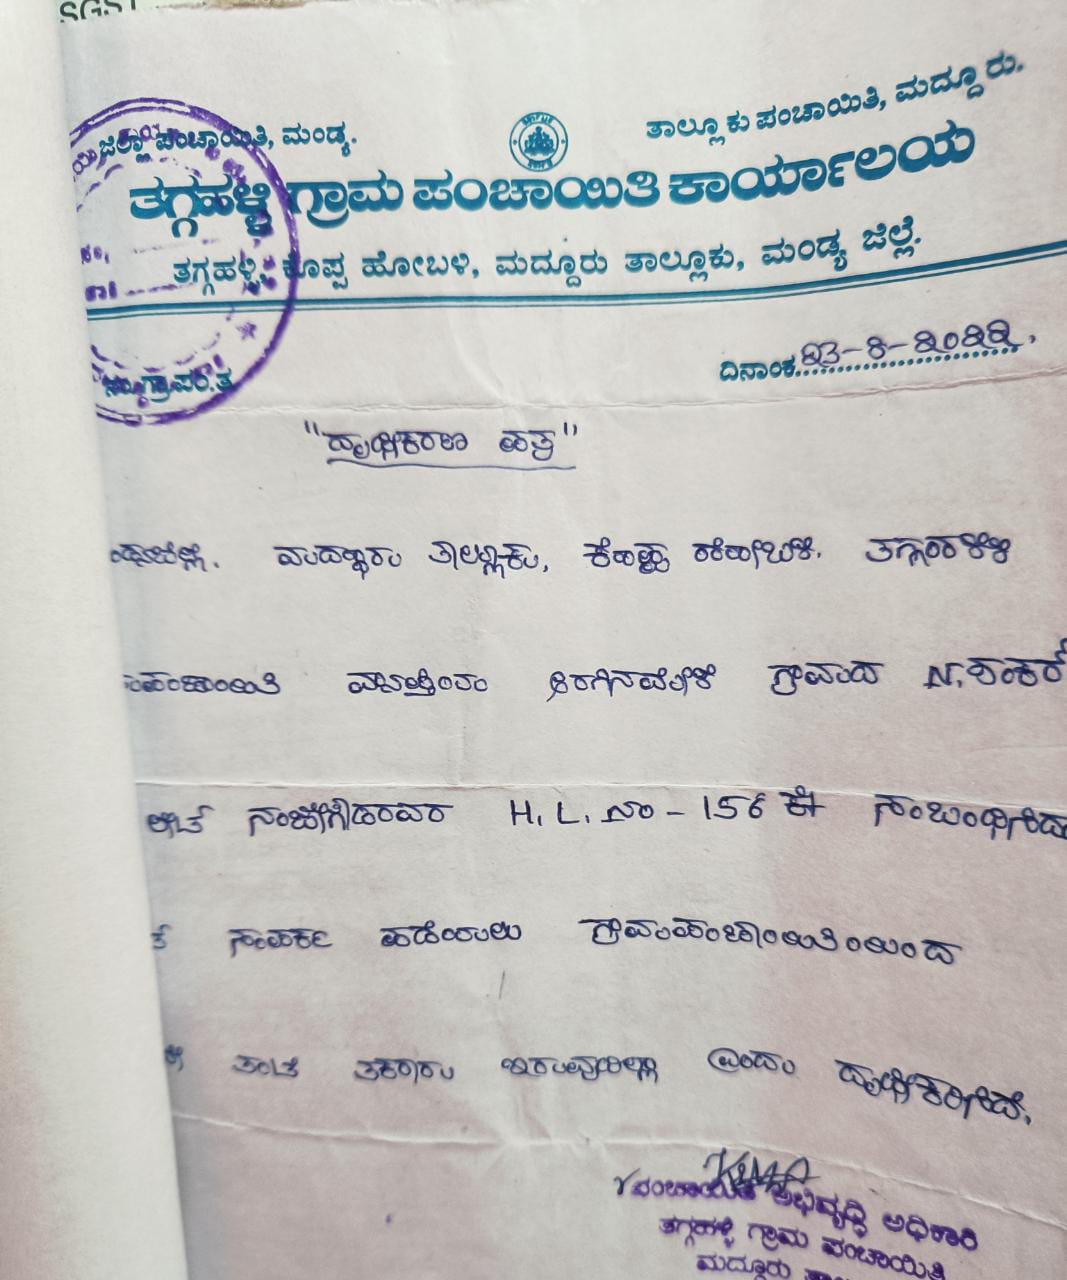 SGST
ಜಿಲ್ಲಾ ಪಂಚಾಯಿತಿ, ಮಂಡ್ಯ.
ತಾಲ್ಲೂಕು ಪಂಚಾಯಿತಿ, ಮದ್ದೂರು.
ತಗ್ಗಹಳ್ಳಿ ಗ್ರಾಮ ಪಂಚಾಯಿತಿ ಕಾರ್ಯಾಲಯ
ತಗ್ಗಹಳ್ಳಿ, ಕೊಪ್ಪ ಹೋಬಳಿ, ಮದ್ದೂರು ತಾಲ್ಲೂಕು, ಮಂಡ್ಯ ಜಿಲ್ಲೆ.
ದಿನಾಂಕ
"ದೃಢೀಕರಣ ಪತ್ರ"
ಮದ್ದೂರು ತಾಲ್ಲೂಕು, ಕೊಪ್ಪ ಹೋಬಳಿ. ತಗ್ಗಹಳ್ಳಿ
ಪಂಚಾಯಿತಿ ಗ್ರಾಮದ N. ಶಂಕರೆ
ನಂಜೇಗೌಡರವರ H. L. ನಂ - 156 ಕ್ಕೆ ಸಂಬಂಧಿಸಿದ
ಸಂಪರ್ಕ ಪಡೆಯಲು ಗ್ರಾಮಪಂಚಾಯಿತಿಯಿಂದ
ತಂಟೆ ತಕರಾರು ಇರುವುದಿಲ್ಲ ಎಂದು ದೃಢೀಕರಿಸಿದೆ.
ಪಂಚಾಯಿತಿ ಅಭಿವೃದ್ಧಿ ಅಧಿಕಾರಿ
ತಗ್ಗಹಳ್ಳಿ ಗ್ರಾಮ ಪಂಚಾಯಿತಿ
ಮದ್ದೂರು